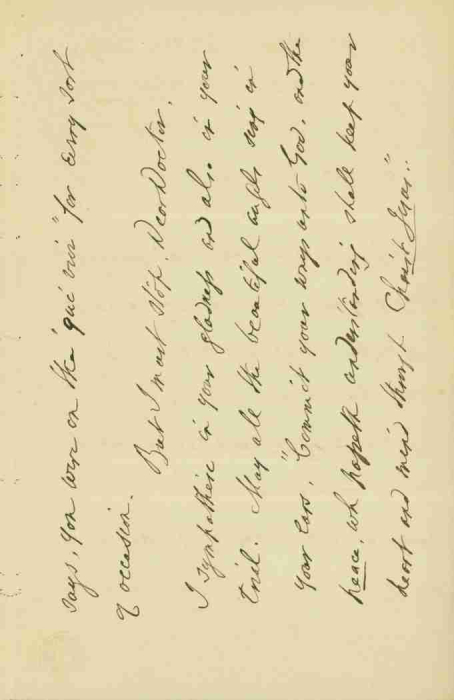 says, you were on the "qui vive" for every sort
of occasion.
But I must stop, Dear Doctor,
I sympathise in your gladness and also in your
trial. May all the beautiful angels sing in
your ears, "Commit your ways unto God, and the
peace, wh passeth understanding shall keep your
heart and mind through Christ Jesus."